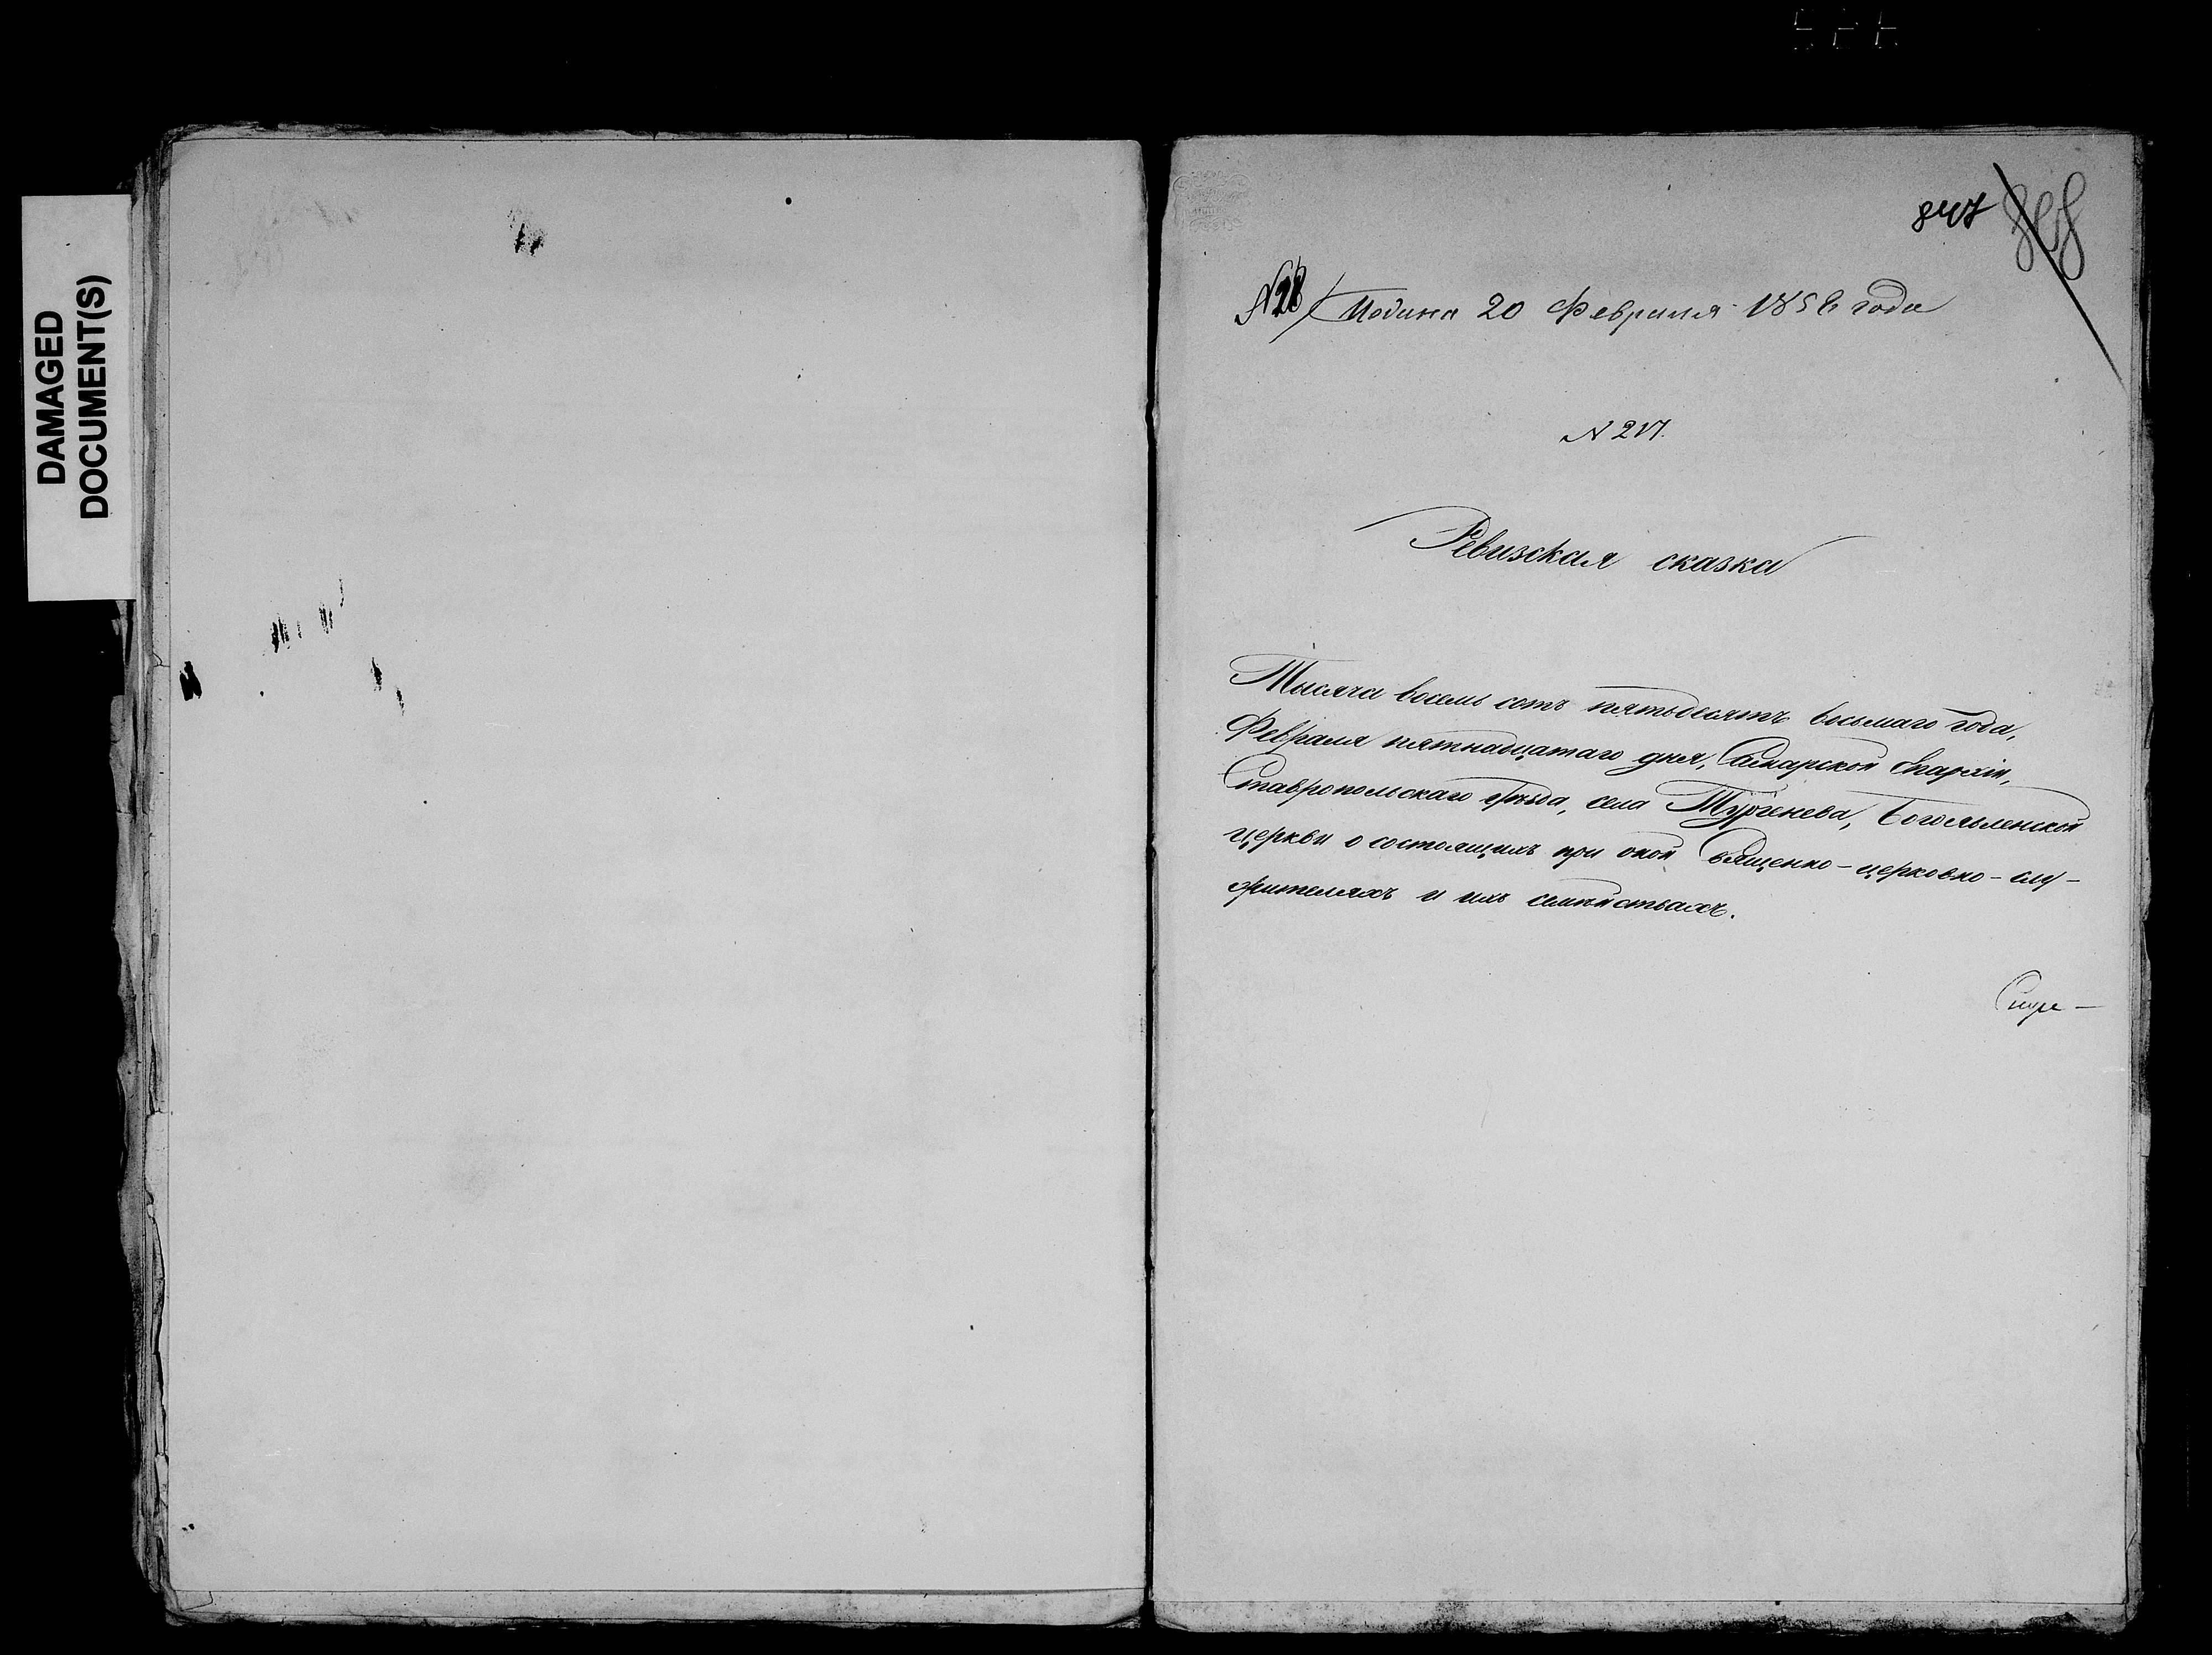 DAMAGED
DOCUMENT(S)
847
N 28 Подана 20 Февраля 1858 года
N 217.
Ревизская сказка
Тысяча восемь сотъ пятьдесятъ восьмаго года,
Февраля пятнадцатаго дня, Самарской Епархіи,
Ставропольскаго уѣзда, села Тургенева, Богоявленской
церкви о состоящихъ при оной Священно-церковно-слу-
жителяхъ и ихъ семействахъ.